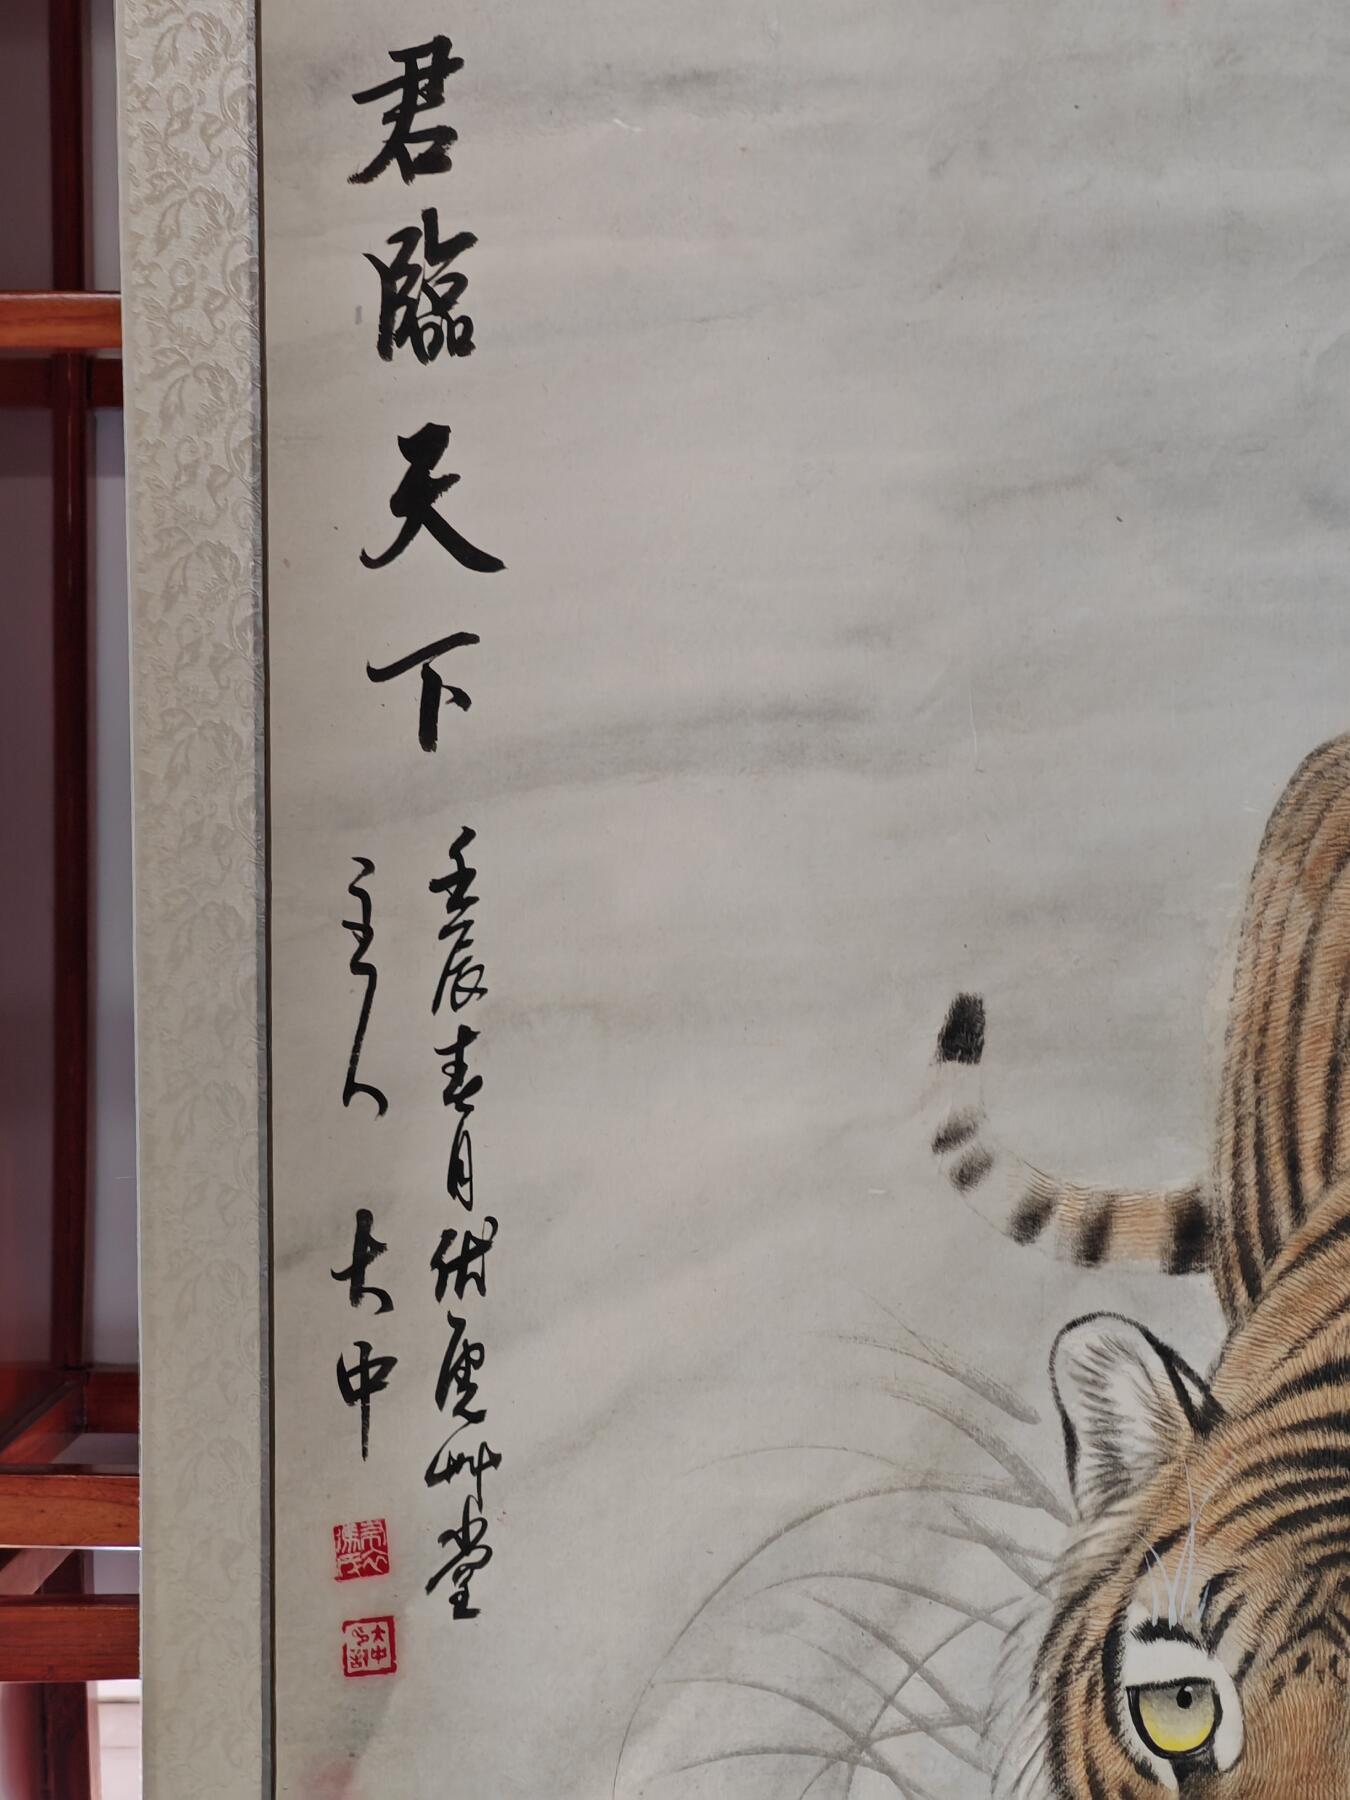 君臨天下
壬辰春月伏虎艸堂
主人 大中
大中